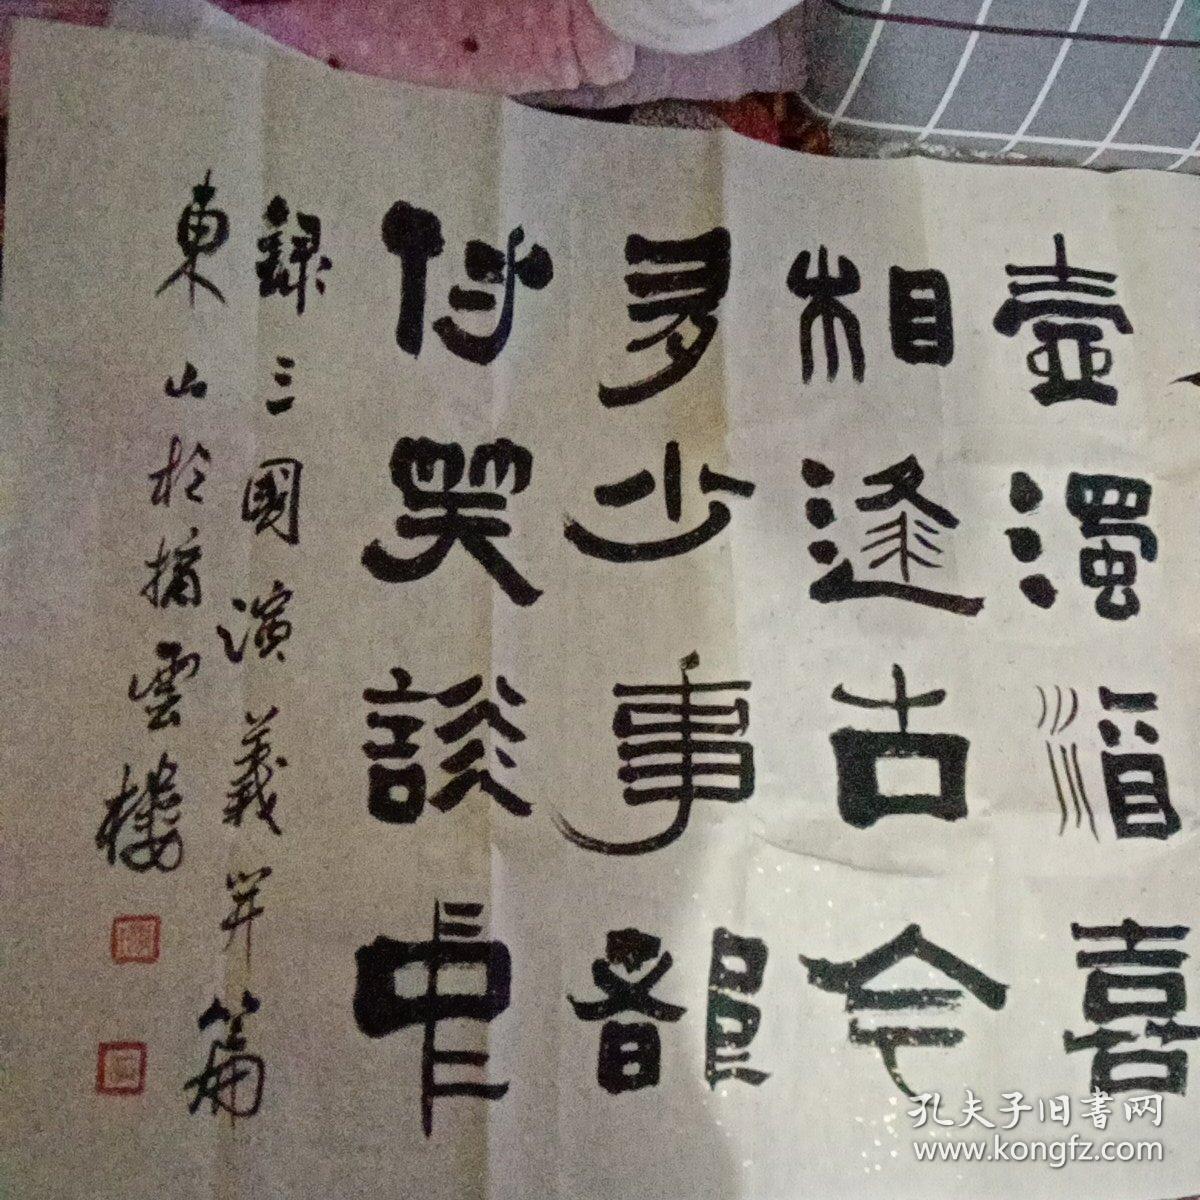 壺濁酒喜
相逢古今
多少事都
付笑談中
録三國演義开篇
東山於摘雲樓
孔夫子旧书网
www.kongfz.com